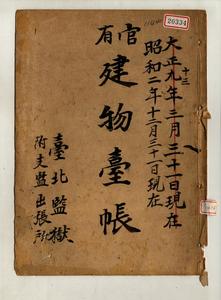 26334
官有
建物臺帳
大正九年三月三十一日現在
十三
昭和二年十二月三十一日現在
臺北監獄
附支監出張所